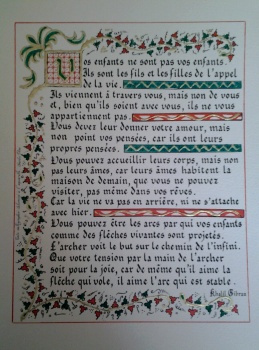 Vos enfants ne sont pas vos enfants.
Ils sont les fils et les filles de l'appel
de la vie.
Ils viennent à travers vous, mais non de vous
et, bien qu'ils soient avec vous, ils ne vous
appartiennent pas.
Vous devez leur donner votre amour, mais
non point vos pensées, car ils ont leurs
propres pensées.
Vous pouvez accueillir leurs corps, mais non
pas leurs âmes, car leurs âmes habitent la
maison de demain, que vous ne pouvez
visiter, pas même dans vos rêves.
Car la vie ne va pas en arrière, ni ne s'attache
avec hier.
Vous pouvez être les arcs par qui vos enfants
comme des flèches vivantes sont projetés.
L'archer voit le but sur le chemin de l'infini.
Que votre tension par la main de l'archer
soit pour la joie, car de même qu'il aime la
flèche qui vole, il aime l'arc qui est stable.
Khalil Gibran